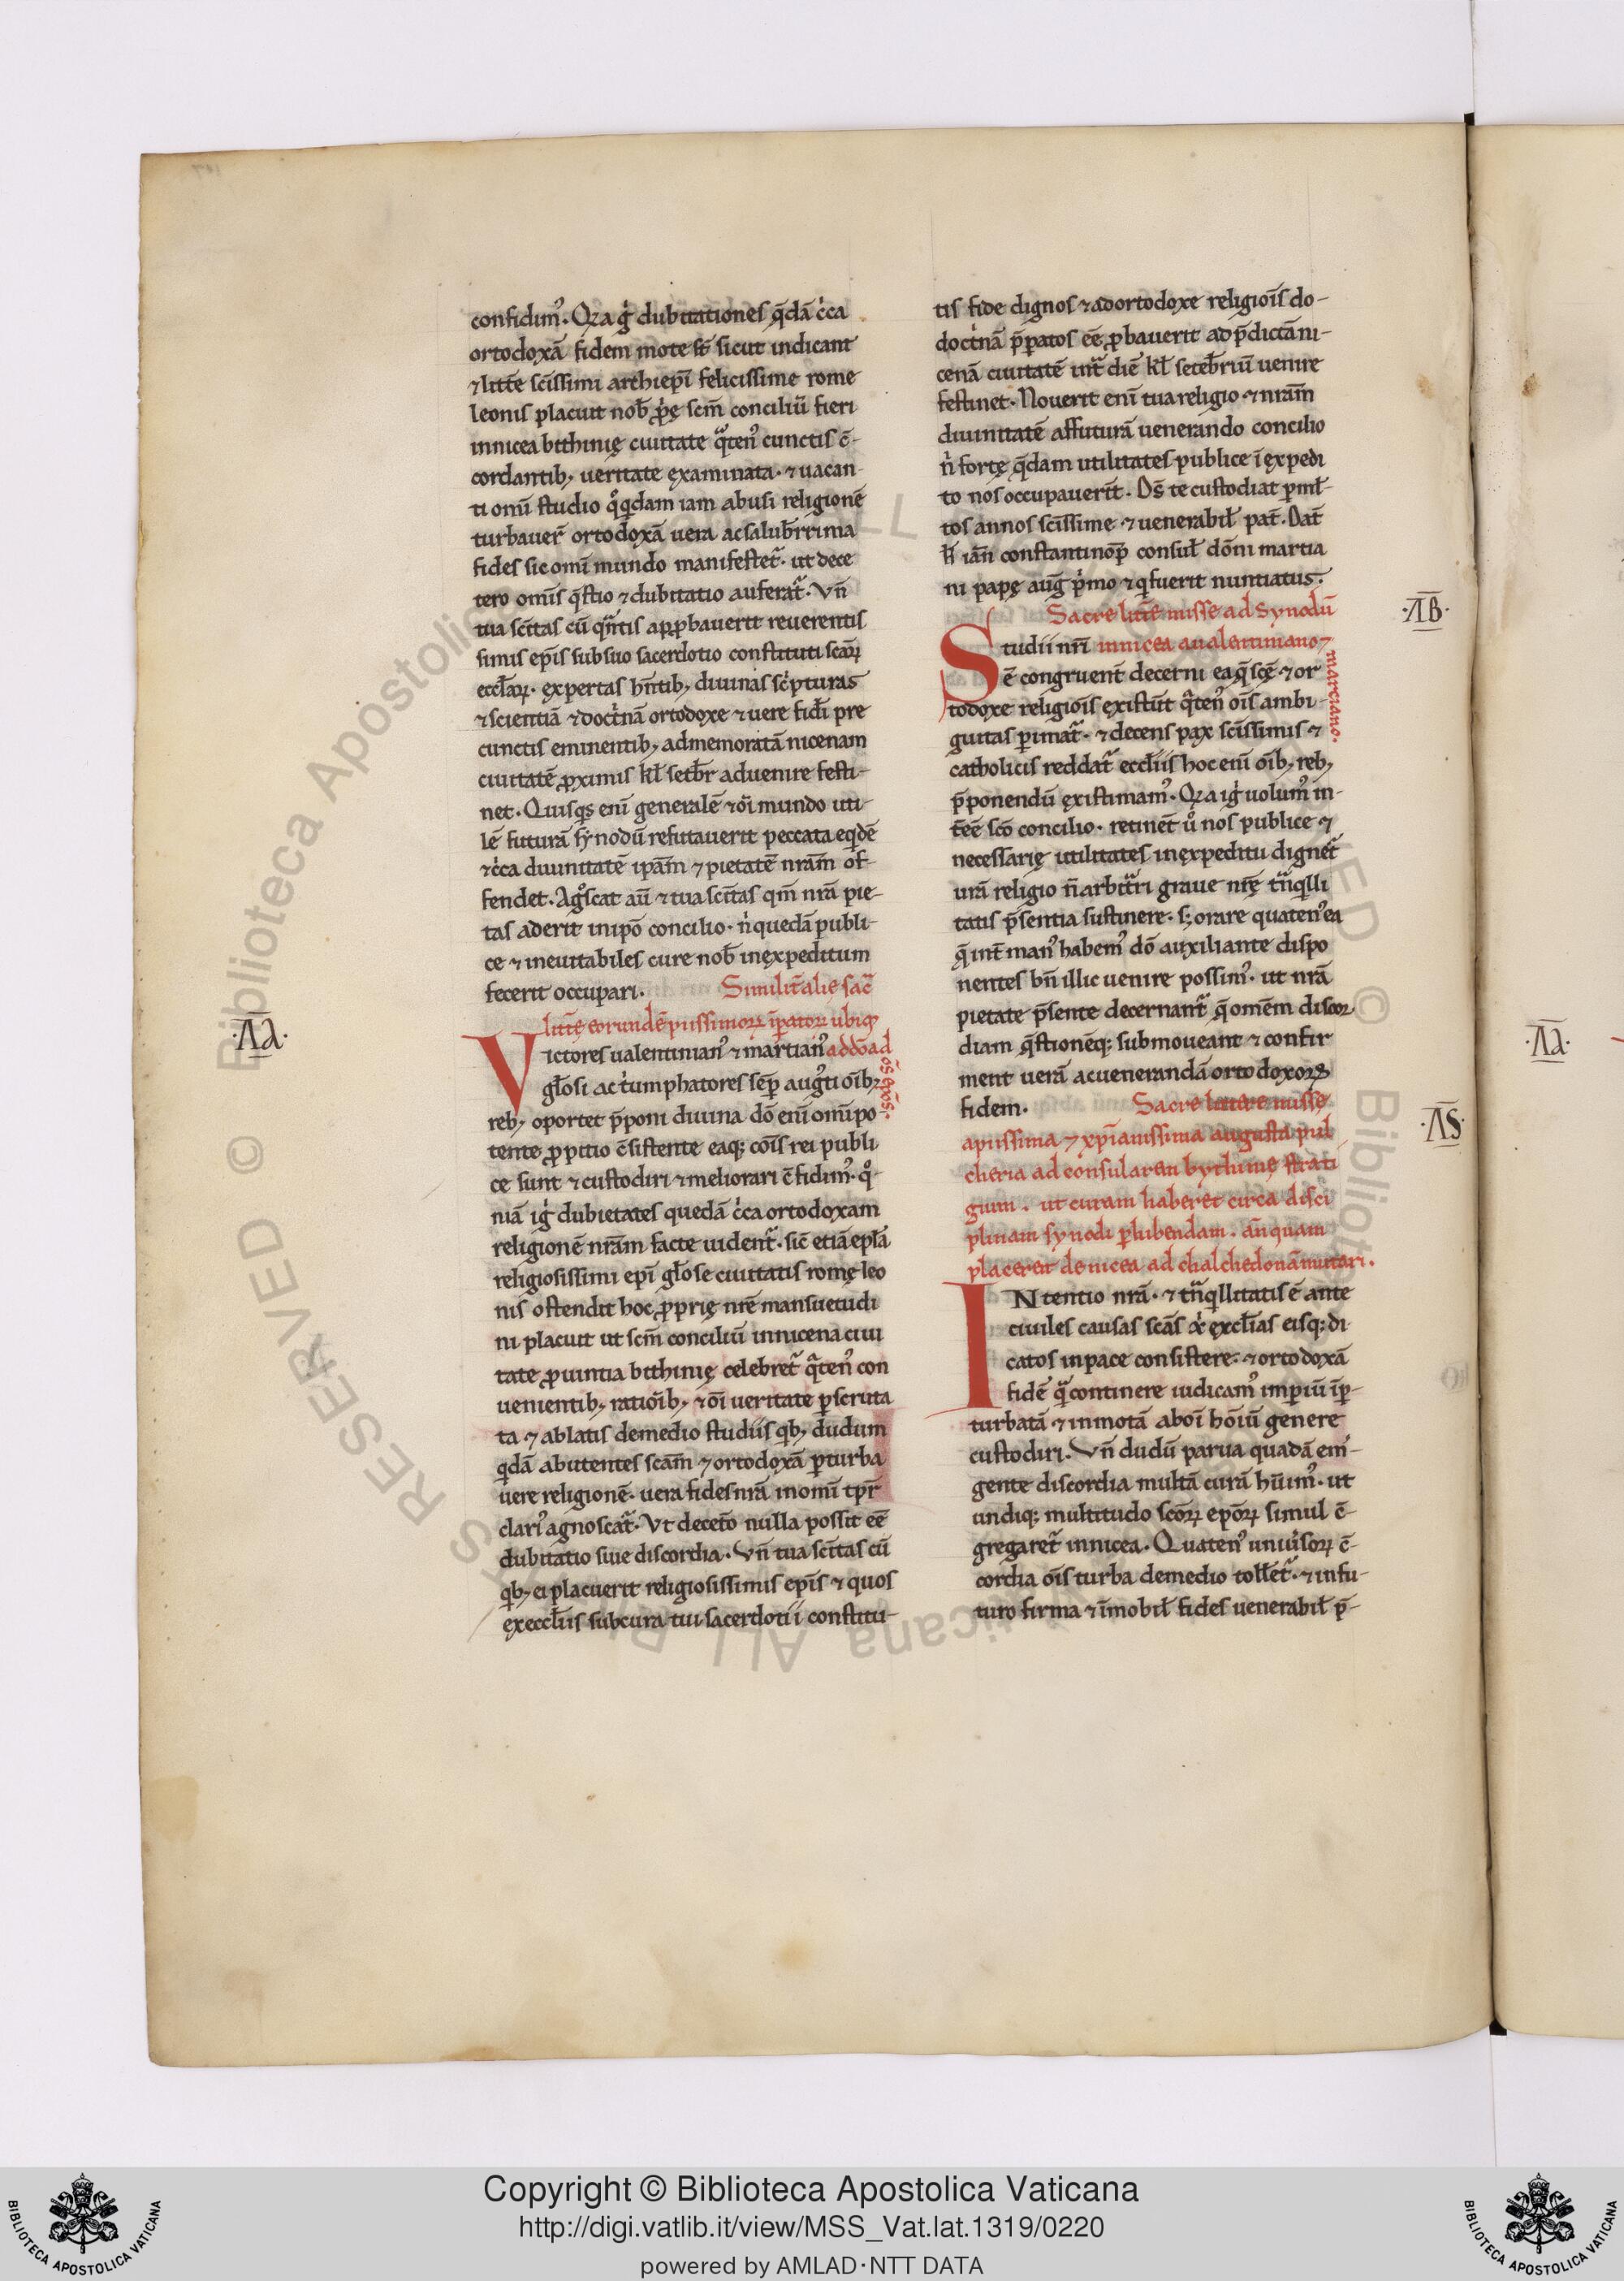 confidim᷒. Qꝛa g̾ dubitationes q̄dā c̾ca
ortodoxā fidem mote st̄ sicut indicant
⁊ litt̄e sc̄issimi archiep̄i felicissime rome
leonis placuit nob̄ p̾ę scm̄ conciliū fieri
innicea bithinię ciuitate q̾ten᷒ cunctis c̄-
cordantib; ueritate ęxaminata. ⁊ uacan-
ti om̄i studio q̊ q̾dam iam abusi religionē
turbauer̄ ortodoxā uera ac salub̄rrima
fides sic om̄i mundo manifestet᷑. ut dece
tero om̄is q̄stio ⁊ dubitatio auferat᷑. Vn̄
tua sc̄itas cū q̾ntis app̱bauerit reuerentis
simis ep̄is sub suo sacerdotio constituti scāꝝ
eccl̄aꝝ. ęxpertas hn̄tib; diuinas sc̾pturas
⁊ scientiā ⁊ doct̾nā ortodoxe ⁊ uere fidi pre
cunctis eminentib; ad memoratā nicenam
ciuitatē ꝓximis kl̄ setb̄r aduenire festi-
net. Quisq̾s eni᷑ generalē ⁊ oi᷑ mundo uti-
lē futurā synodū refutauerit peccata eq̾dē
⁊ c̾ca diuinitatē ipām ⁊ pietatē nrām of-
fendet. Ag̊scat aū ⁊ tua sc̄itas qm̄ nrā pie-
tas aderit in ipō concilio. n̾ quedā publi-
ce ⁊ ineuitabiles cure nob̄ inęxpeditum
fecerit occupari. Similit̄ alię sac᷑
litt̄ę eorundē piissimoꝝ īperatoꝝ ubiq;
Victores ualentinian᷒ ⁊ martian᷒ ad dōad
gl̄osi ac t̾umphatores sēp aug᷑ti oīb;
reb; oportet p̄poni diuina dō eni᷑ om̄ipo
tente ꝓpitio c̄sistente eaq; cōis rei publi
ce sunt ⁊ custodiri ⁊ meliorari c̄fidim᷒. q̊-
niā ig̾ dubietates quedā c̾ca ortodoxam
religionē nrām facte uident᷑. sic̄ etiā eplā
religiosissimi ep̄i gl̄ose ciuitatis romę leo
nis ostendit hoc ꝓprię nrē mansuetudi
ni placuit ut scm̄ conciliū innicena ciui
tate ꝓuintia bithinię celebret᷑ q̾ten᷒ con
uenientib; ratiōib; ⁊ oi᷑ ueritate pscruta
ta ⁊ ablatis demedio studiis q̾b; dudum
q̾dā abutentes scām ⁊ ortodoxā pturba
uere religionē. uera fides nrā in omi᷑ tpr̄
clari᷒ agnoscat᷑. Vt decet̄o nulla possit eē
dubitatio siue discordia. Vn̄ tua sc̄itas cū
q̾b; ei placuerit religiosissimis ep̄is ⁊ quos
ęxeccl̄iis sub cura tui sacerdotii constitu-
·Λλ·
tis fide dignos ⁊ ad ortodoxe religiōis do-
doct̾nā p̄patos eē ꝓbauerit ad p̄dictā ni-
cenā ciuitatē int᷑ diē kl̄ seteb̄riū uenire
festinet. Nouerit eni᷑ tua religio ⁊ nrām
diuinitatē affuturā uenerando concilio
n̾ fortę q̄dam utilitates publice i᷑ ęxpedi
to nos occupauerit̄. Ds̄ te custodiat p ml̄-
tos annos sc̄issime ⁊ uenerabil̄ pat̄. Dat̄
k̄ iān constantinop̄ consul̄ dōni martia
ni papę aug̾ p̾mo ⁊ q̾ fuerit nuntiatus.
Sacre litt̄e misse ad synodū
Studii nr̄i innicea a ualentiniano ⁊
marciano.
ē congruent̄ decerni eaq̄ sc̄ę ⁊ or
todoxe religiōis ęxistūt q̾ten᷒ oīs ambi
guitas pimat᷑. ⁊ decens pax sc̄issimis ⁊
catholicis reddat᷑ eccl̄iis hoc eni᷑ oīb; reb;
p̄ponendū ęxistimam᷒. Qꝛa ig̾ uolum᷒ in-
t̄eē scō concilio. retinēt ů nos publice ⁊
necessarię utilitates inęxpeditu dignet᷑
urā religio n̄ arbit᷑ri graue nrę t᷑nq̾lli
tatis p̄sentia sustinere. s; orare quaten᷒ ea
q̄ int̄ man᷒ habem᷒ dō auxiliante dispo
nentes bn̄ illic uenire possim᷒. ut nrā
pietate p̄sente decernant᷑ q̄ omēm discor
diam q̄stionēq; submoueant ⁊ confir
ment uerā ac uenerandā ortodoxorꝝ
fidem. Sacre littere misse
apiissima ⁊ xp̄ianissima augusta pul
cheria ad consularem bythinię strati
gum. ut curam haberet circa disci
plinam synodi phibendam. an̄quam
placeret de nicea ad chalchedonā mutari.
INtentio nrā. ⁊ t᷑nq̾llitatis ē ante
ciuiles causas scās ęxcl̄ias eisq; di
catos in pace consistere. ⁊ ortodoxā
fidē q̾ continere iudicam᷒ imperiū īp-
turbatā ⁊ inmotā ab oi᷑ hōiū genere
custodiri. Vn̄ dudū parua quadā em̾-
gente discordia multā curā hūim᷒. ut
undiq; multitudo scōꝝ epōꝝ simul c̄-
gregaret᷑ innicea. Quaten᷒ uniu̾soꝝ c̄-
cordia oīs turba demedio toll̄et᷑. ⁊ in fu-
turo firma ⁊ īmobil̄ fides uenerabil̄ p̄-
·ΛB·
·Λλ·
·ΛS·
Copyright © Biblioteca Apostolica Vaticana
http://digi.vatlib.it/view/MSS_Vat.lat.1319/0220
powered by AMLAD·NTT DATA